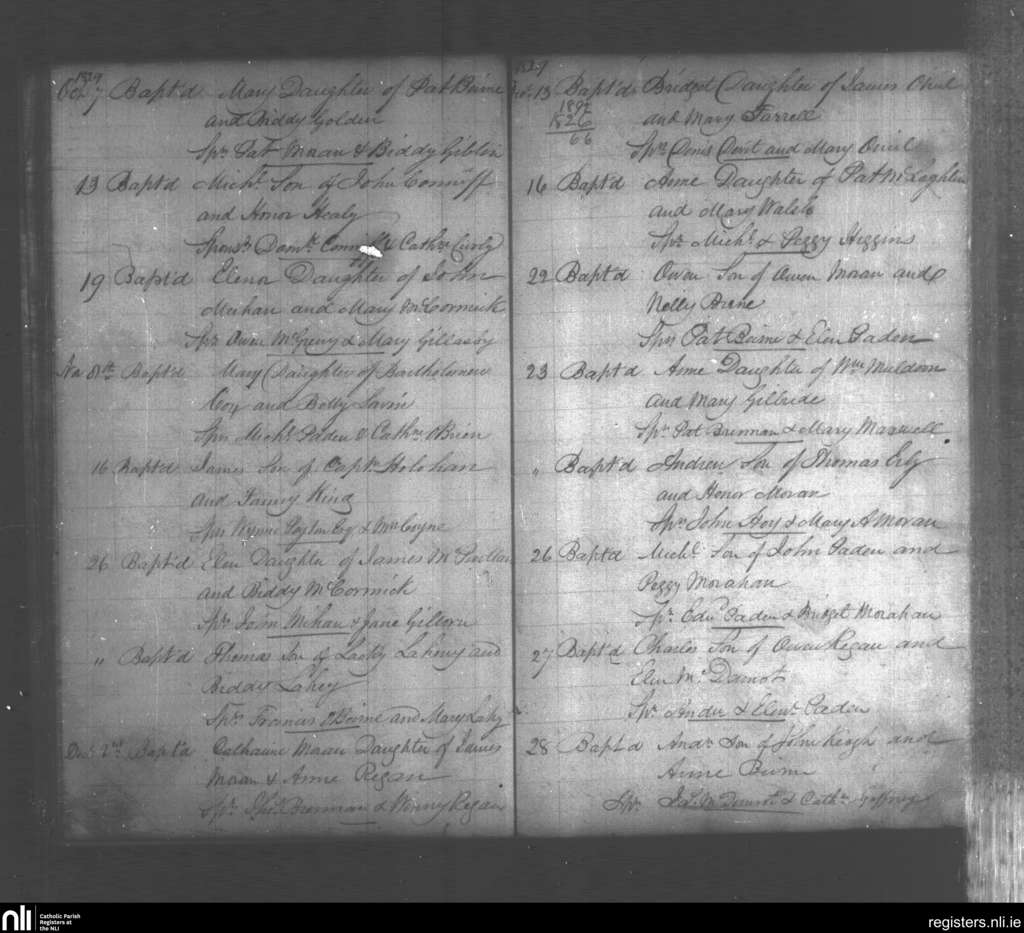 1829
Oct 7 Bapt'd Mary Daughter of Pat Beirne
and Biddy Golden
Spr. Pat Moran & Biddy Giblin
13 Bapt'd Michl. Son of John Conniff
and Honor Healy
Sponsr. Domk. Conniff & Cathne Curly
19 Bapt'd Elenor Daughter of John
Meehan and Mary McCormick
Sprs Owen McGreevy & Mary Gillasby
Nov 8th Bapt'd Mary Daughter of Bartholomew
Coy and Betty Lavin
Sprs Michl. Paden & Cathne OBrien
16 Bapt'd James Son of Captn. Holohan
and Fanny King
Sprs Peyton Esq & Mrs Coyne
26 Bapt'd Elen Daughter of James
and Biddy McCormick
Spr. John Mihan & Jane Gilloru
" Bapt'd Thomas Son of Lacky Lahey and
Biddy Lahey
Sprs. Francis OBeirne and Mary Lahy
Decr 2nd Bapt'd Catharine Moran Daughter of James
Moran & Anne Regan
Spr. Brennan & Winny Regan
1829
Decr. 13 Bapt'd Bridget Daughter of James
1892
1826
66
and Mary Farrell
Sprs and Mary
16 Bapt'd Anne Daughter of Pat McLoghlin
and Mary Walsh
Spr. Michl. & Peggy Higgins
22 Bapt'd Owen Son of Owen Moran and
Nelly Birne
Sprs Pat Beirne & Elen Paden
23 Bapt'd Anne Daughter of Wm Muldoon
and Mary Gilbride
Sprs. Pat Brennan & Mary Maxwell
" Bapt'd Andrew Son of Thomas
and Honor Moran
Spr. John Hoy & Mary A Moran
26 Bapt'd Michl. Son of John Paden and
Peggy Morahan
Spr. Edwd Paden & Bridget Morahan
27 Bapt'd Charles Son of Owen Regan and
Elen McDarmot
Spr. Andw & Elenr. Paden
28 Bapt'd Andw. Son of John Keogh and
Anne Birne
Spr. & Cathn. Gaffney
nli Catholic Parish
Registers at
the NLI
registers.nli.ie